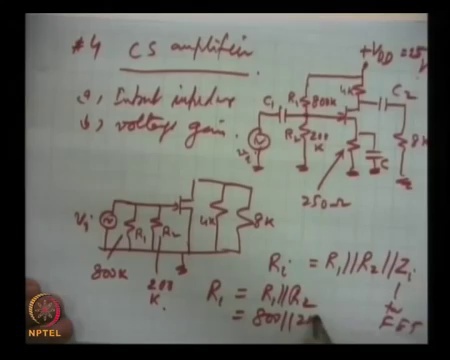 #4 CS amplifier
a, Input impedance
b, voltage gain.
+VDD = 25V
4K
C2
R1 800K
C1
R2 200 K
8K
C
250Ω
Vi
R1
R2
4K
8K
800K
200 K.
Ri = R1 || R2 || Zi
FET
R1 = R1 || R2
= 800 || 20
NPTEL